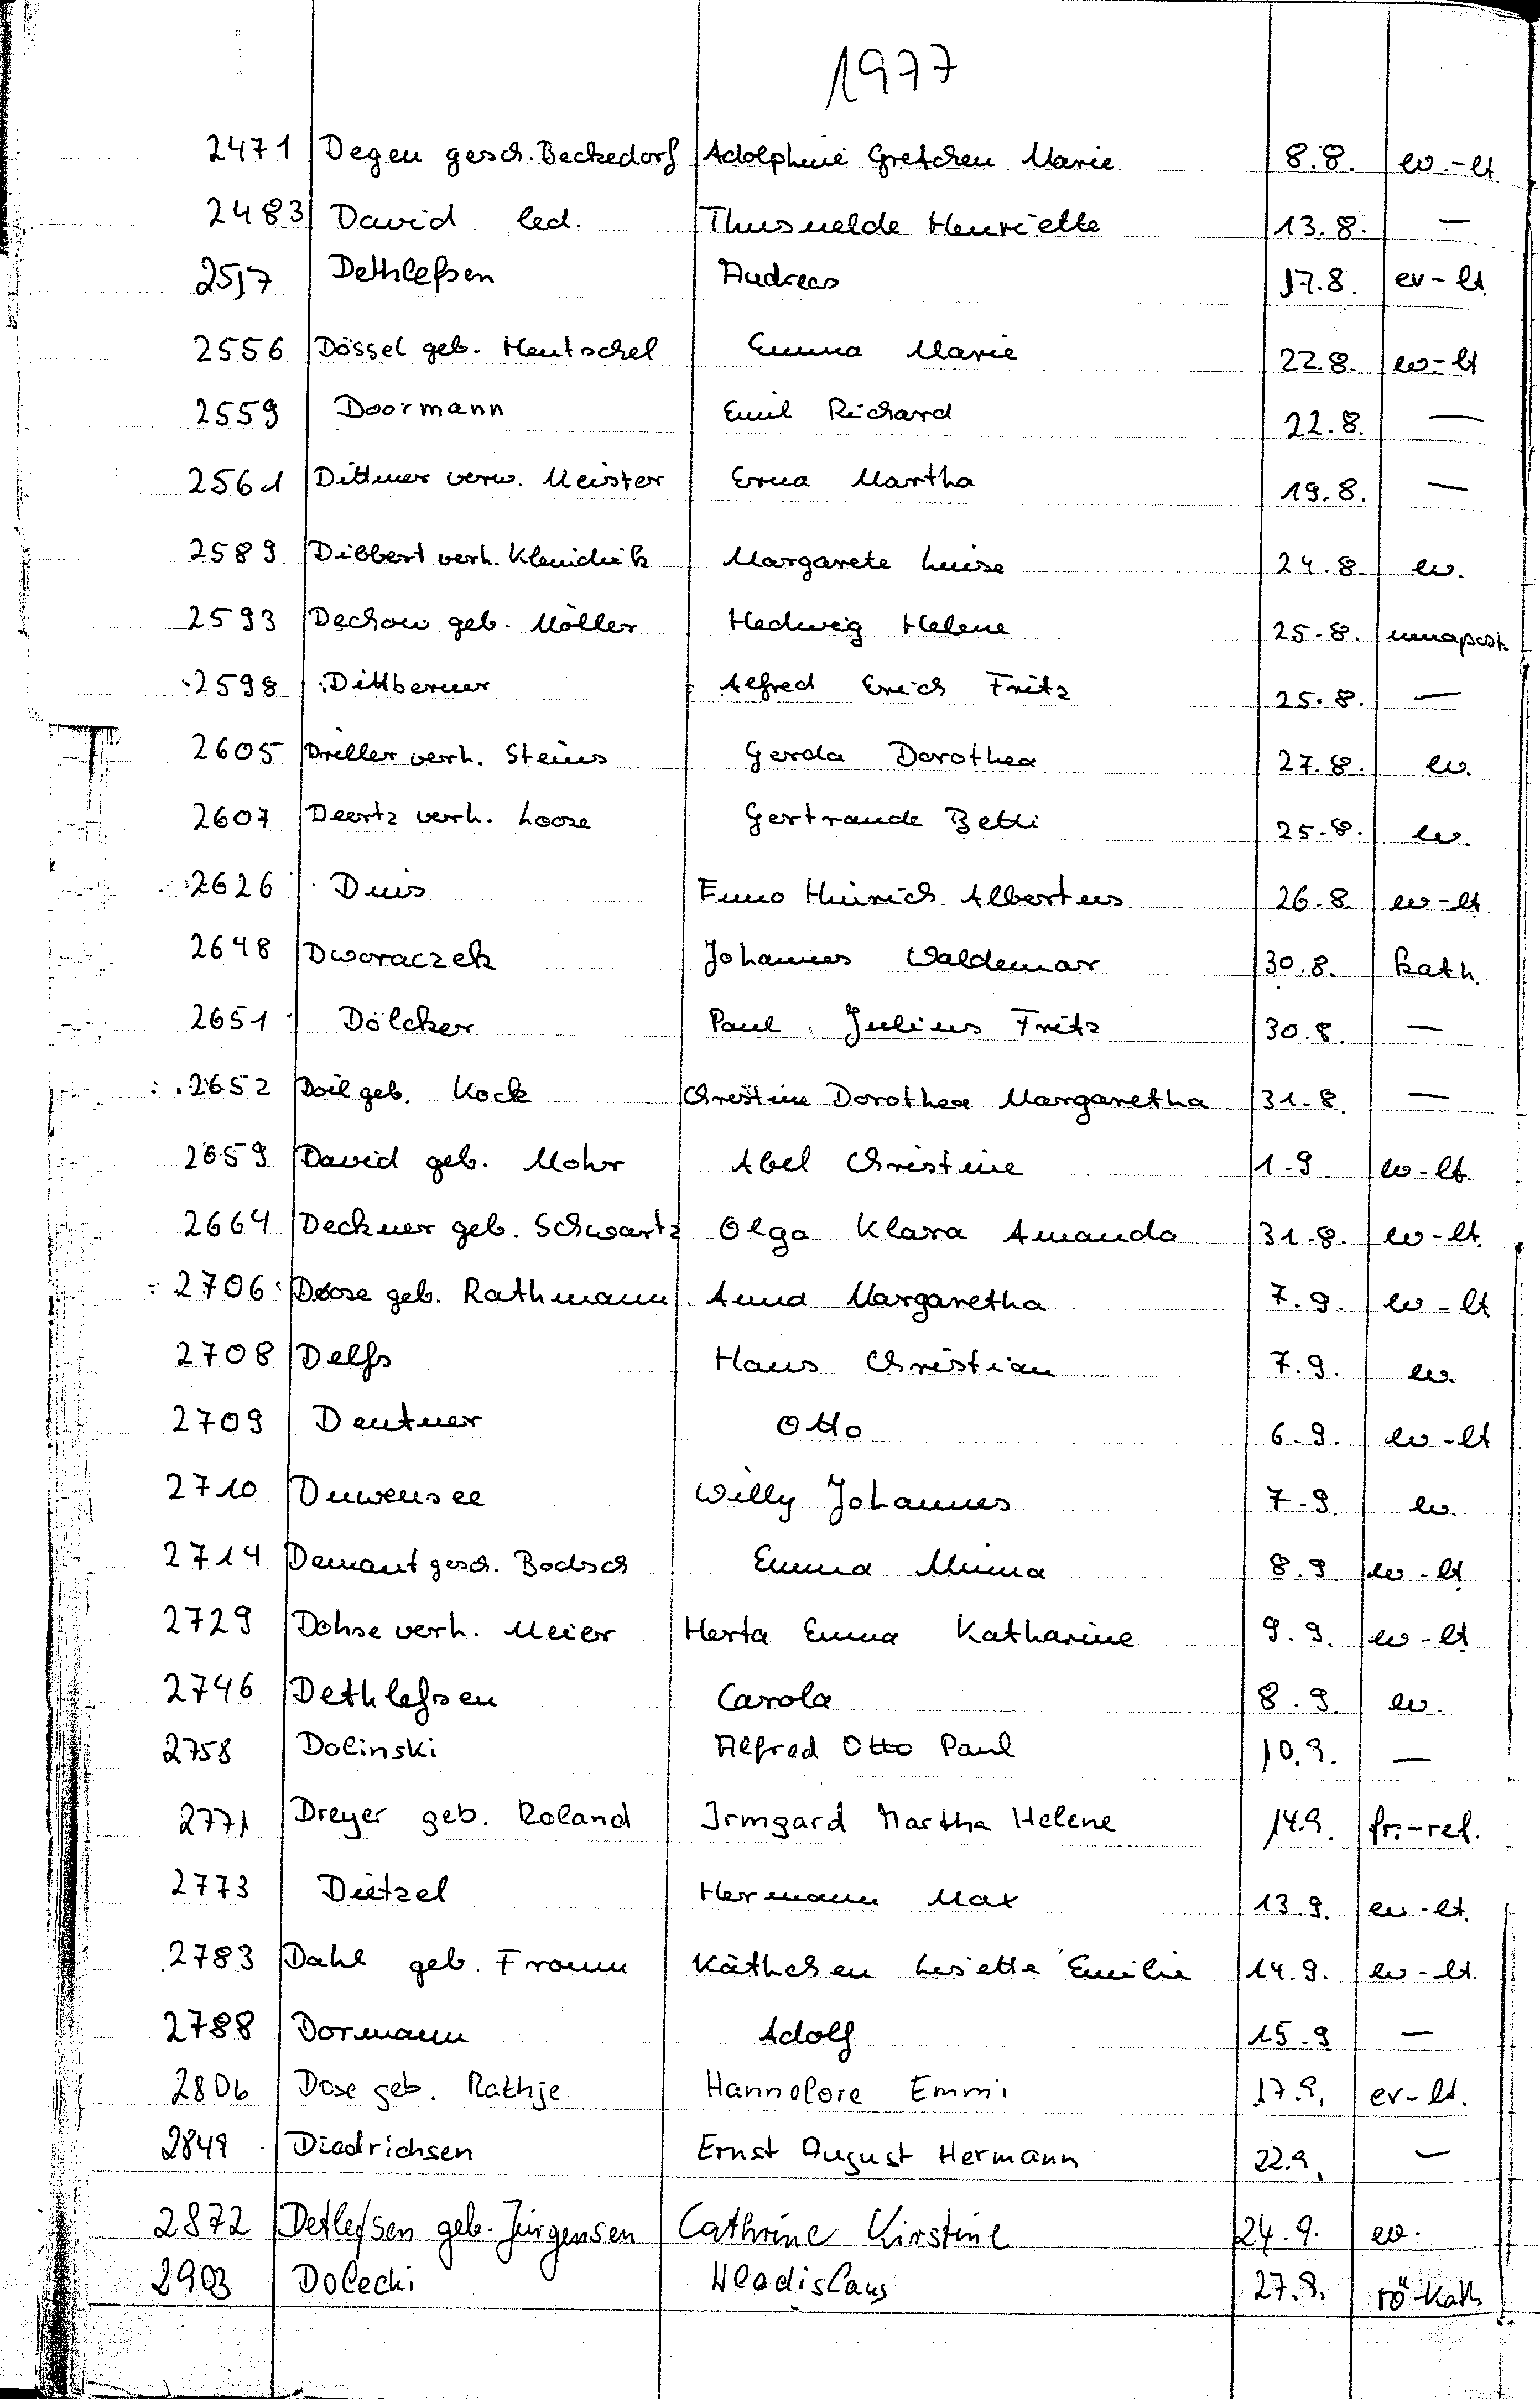 1977
2471 Degen gesch. Beckedorf Adolphine Gretchen Marie 8.8. ev.-lt
2483 David led. Thusnelde Henriette 13.8. —
2517 Dethlefsen Andreas 17.8. ev-lt.
2556 Dössel geb. Hentschel Emma Marie 22.8. ev-lt
2559 Doormann Emil Richard 22.8. —
2561 Dittmer verw. Meister Erna Martha 19.8. —
2589 Dibbert verh. Margarete Luise 24.8 ev.
2593 Dechow geb. Möller Hedwig Helene 25.8.
2598 Dittberner Alfred Erich Fritz 25.8. —
2605 Driller verh. Steins Gerda Dorothea 27.8. ev.
2607 Deertz verh. Loose Gertraude Betti 25.8. ev.
2626 Duis Enno Hinrich Albertus 26.8. ev-lt
2648 Dworaczek Johannes Waldemar 30.8. kath.
2651 Dölcker Paul Julius Fritz 30.8. —
2652 Doil geb. Kock Christine Dorothea Margaretha 31.8. —
2659 David geb. Mohr Abel Christine 1.9. ev-lt.
2664 Deckner geb. Schwartz Olga Klara Amanda 31.8. ev-lt.
2706 Doose geb. Rathmann Anna Margaretha 7.9. ev-lt
2708 Delfs Hans Christian 7.9. ev.
2709 Dentner Otto 6.9. ev-lt
2710 Duwensee Willy Johannes 7.9. ev.
2714 Demant gesch. Bodsch Emma Minna 8.9 ev-lt
2729 Dohse verh. Meier Herta Emma Katharine 9.9. ev-lt
2746 Dethlefsen Carola 8.9. ev.
2758 Dolinski Alfred Otto Paul 10.9. —
2771 Dreyer geb. Roland Irmgard Martha Helene 14.9. fr.-rel.
2773 Dietzel Hermann Max 13.9. ev-lt.
2783 Dahl geb. Fromm Käthchen Lisette Emilie 14.9. ev-lt.
2788 Dormann Adolf 15.9 —
2806 Dose geb. Rathje Hannelore Emmi 17.9. ev-lt.
2849 Diedrichsen Ernst August Hermann 22.9. —
2872 Detlefsen geb. Jürgensen Cathrine Kirstine 24.9. ev.
2903 Dolecki Wladislaus 27.9. rö-kath